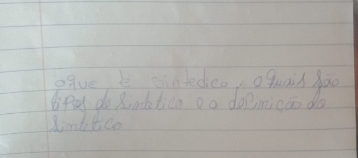 oque é Sintedica e quais São
tipos de Sintetico e a definição do
Sintetico